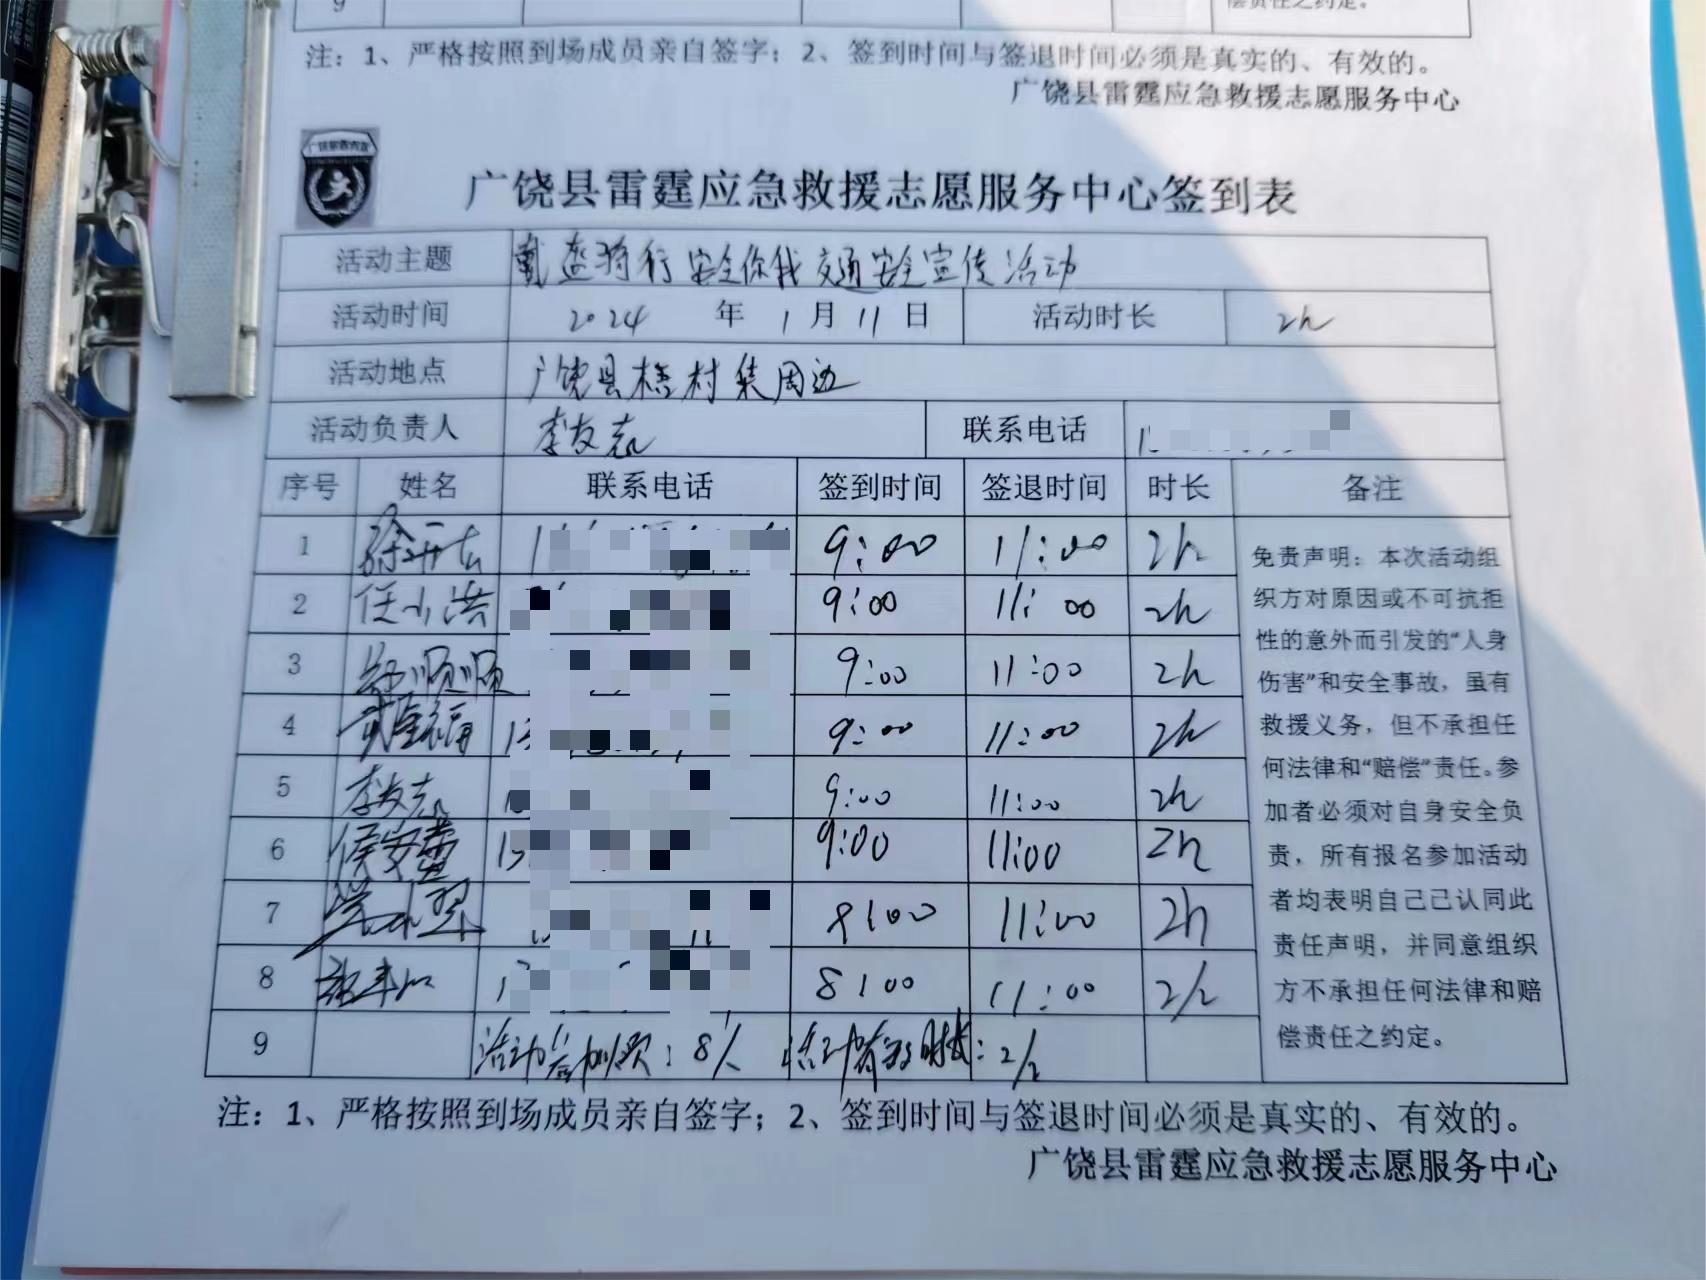 9
偿责任之约定。
注：1、严格按照到场成员亲自签字；2、签到时间与签退时间必须是真实的、有效的。
广饶县雷霆应急救援志愿服务中心
广饶县雷霆应急救援志愿服务中心签到表
活动主题 戴盔骑行 安全你我 交通安全宣传活动
活动时间 2024 年 1 月 11 日 活动时长 2h
活动地点 广饶县 村集周边
活动负责人 李友志 联系电话 1
序号 姓名 联系电话 签到时间 签退时间 时长 备注
1 徐 1 9:00 11:00 2h
2 任小洪 9:00 11:00 2h
3 顺顺 9:00 11:00 2h
4 福 15 9:00 11:00 2h
5 李友志 9:00 11:00 2h
6 侯安蕾 15 9:00 11:00 2h
7 8:00 11:00 2h
8 1 8:00 11:00 2h
9 活动参加人员：8人 活动有效时长：2h
免责声明：本次活动组
织方对原因或不可抗拒
性的意外而引发的“人身
伤害”和安全事故，虽有
救援义务，但不承担任
何法律和“赔偿”责任。参
加者必须对自身安全负
责，所有报名参加活动
者均表明自己己认同此
责任声明，并同意组织
方不承担任何法律和赔
偿责任之约定。
注：1、严格按照到场成员亲自签字；2、签到时间与签退时间必须是真实的、有效的。
广饶县雷霆应急救援志愿服务中心